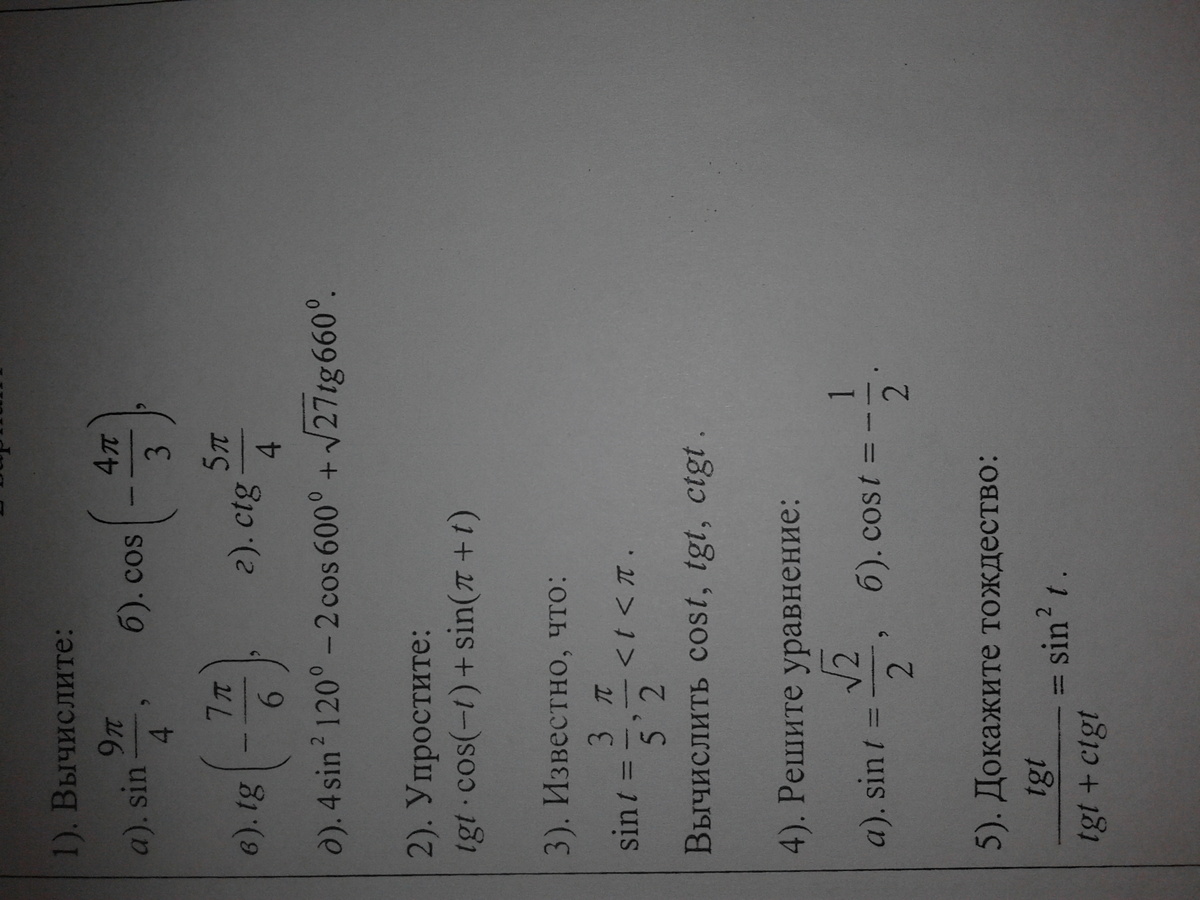 1). Вычислите:
а). sin 9π/4, б). cos(−4π/3),
в). tg(−7π/6), г). ctg 5π/4
д). 4 sin² 120⁰ − 2 cos 600⁰ + √27 tg 660⁰.
2). Упростите:
tgt · cos(−t) + sin(π + t)
3). Известно, что:
sin t = 3/5, π/2 < t < π.
Вычислить cos t, tgt, ctgt.
4). Решите уравнение:
а). sin t = √2/2, б). cos t = −1/2.
5). Докажите тождество:
tgt/(tgt + ctgt) = sin² t.